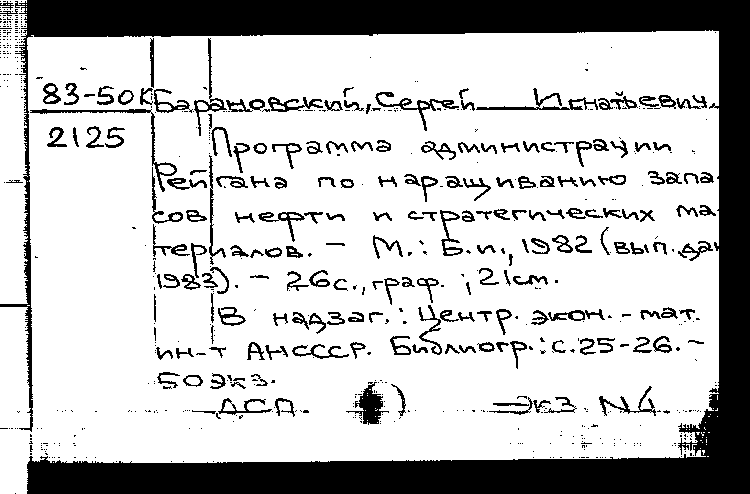 83-50К Барановский, Сергей Игнатьевич.
2125
Программа администрации
Рейгана по наращиванию запа-
сов нефти и стратегических ма-
териалов. – М.: Б.и., 1982 (вып. дан
1983). – 26с., граф. ; 21см.
В надзаг.: Центр. экон.-мат.
ин-т АНСССР. Библиогр.: с.25-26. –
50экз.
ДСП. Экз. N4